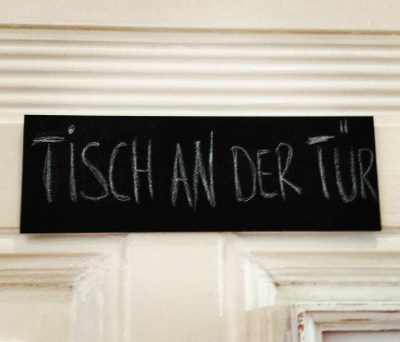 TiSCH AN DER TÜR